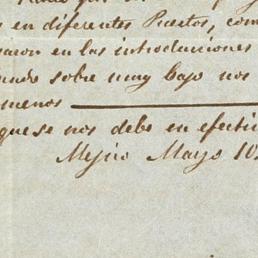 en diferentes Puertos, com
saron en las introducciones
undo sobre muy bajo nos
menos
que se nos debe en efecti
Mejico Mayo 10